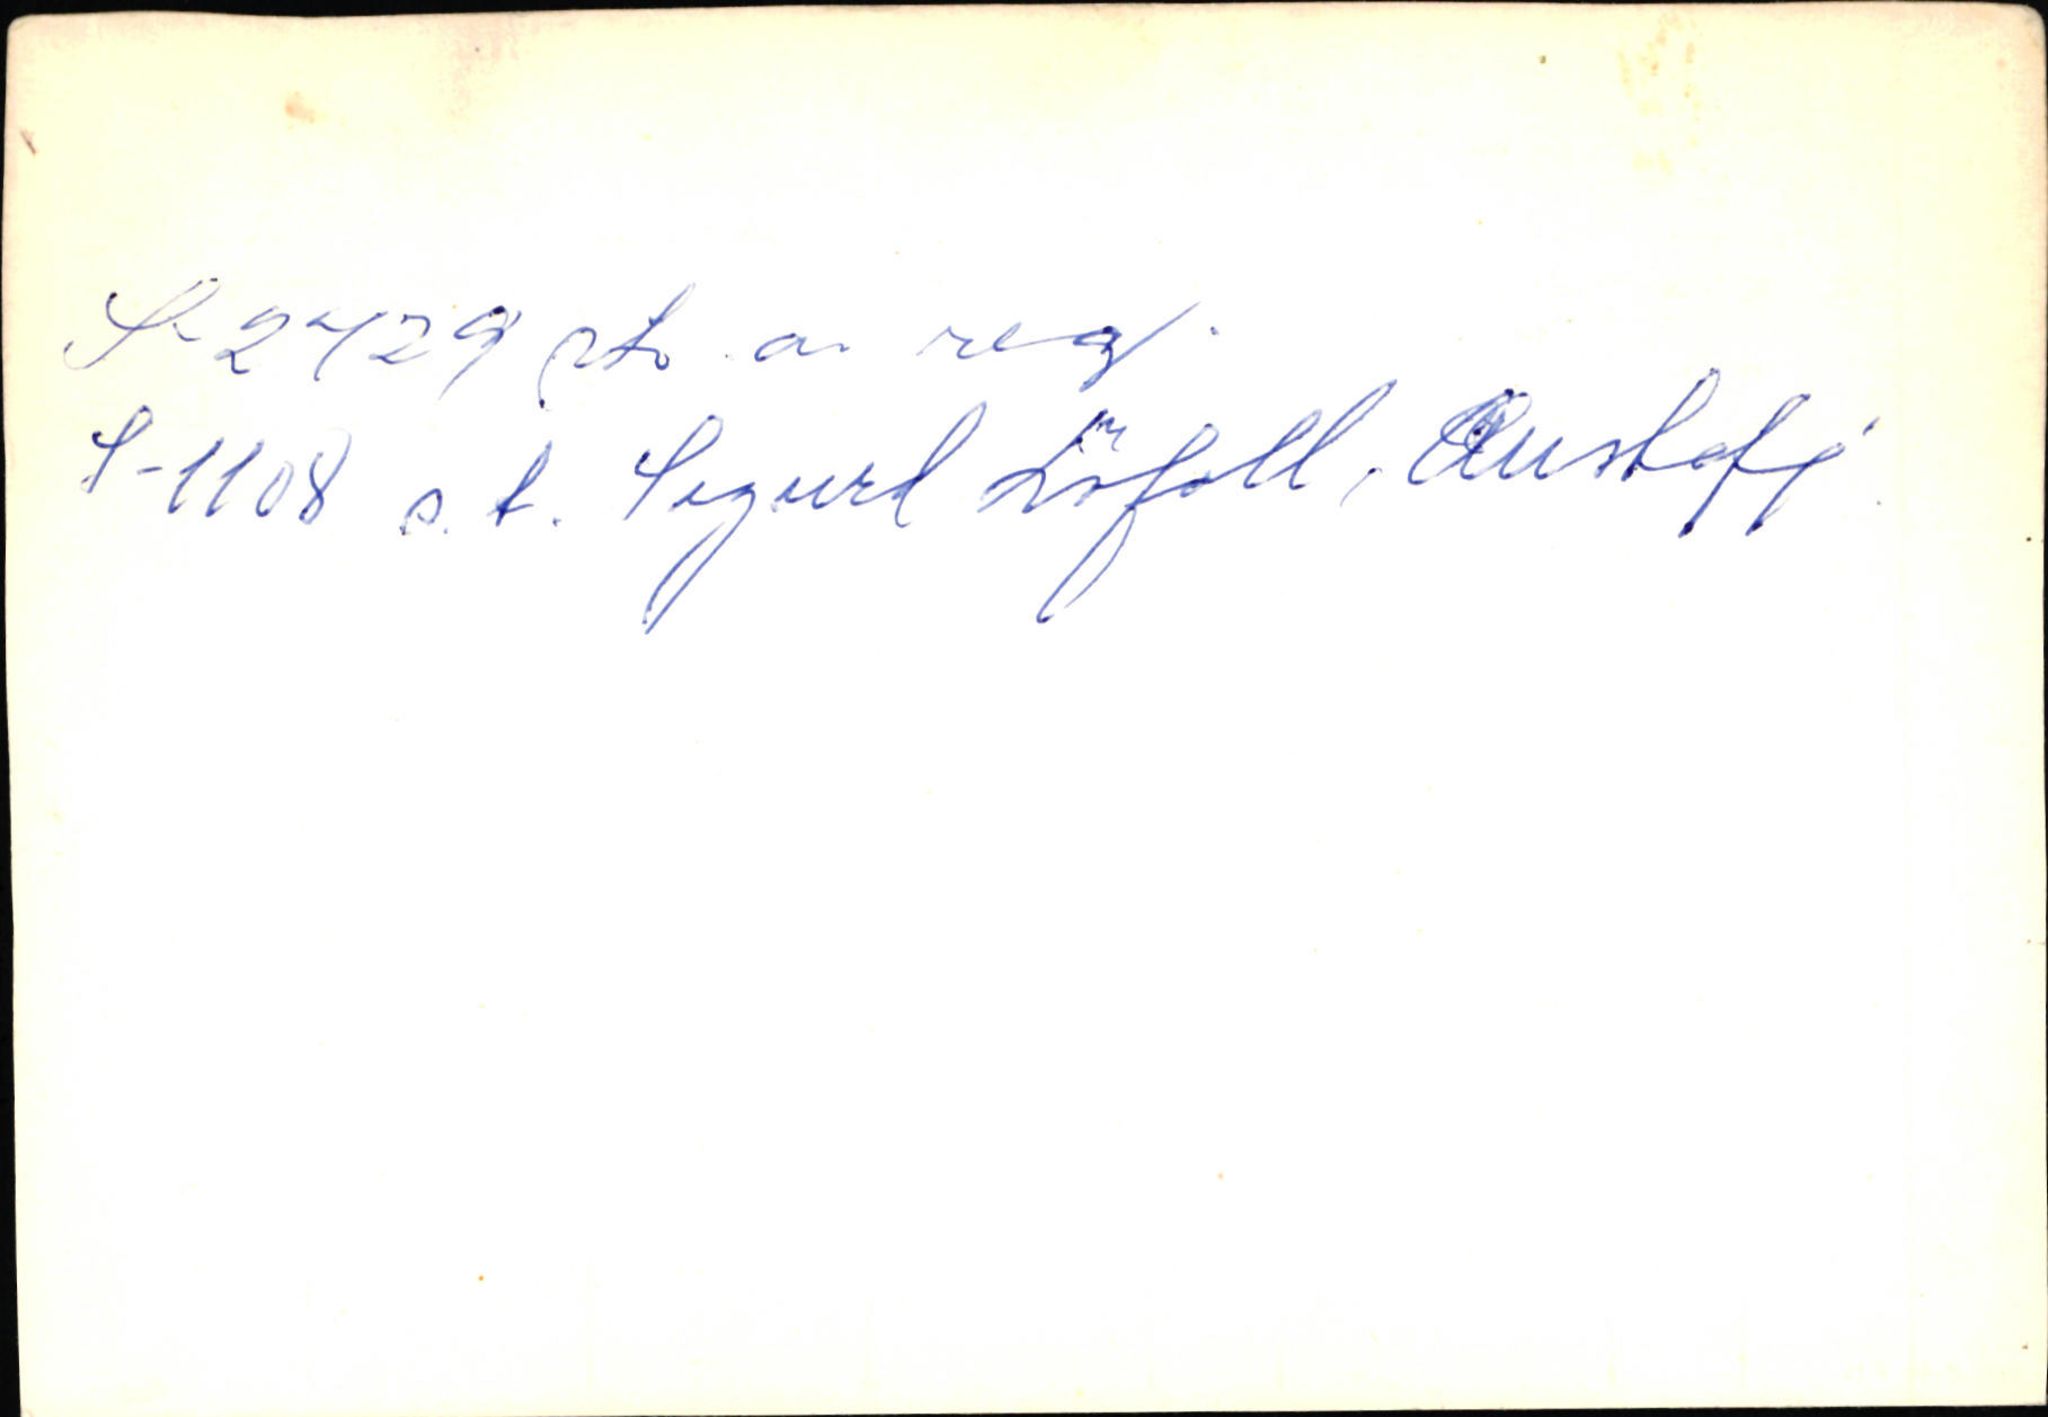 S-2429 st. a. reg.
S-1108 s.t. Sigurd Löfoll, Austefj.